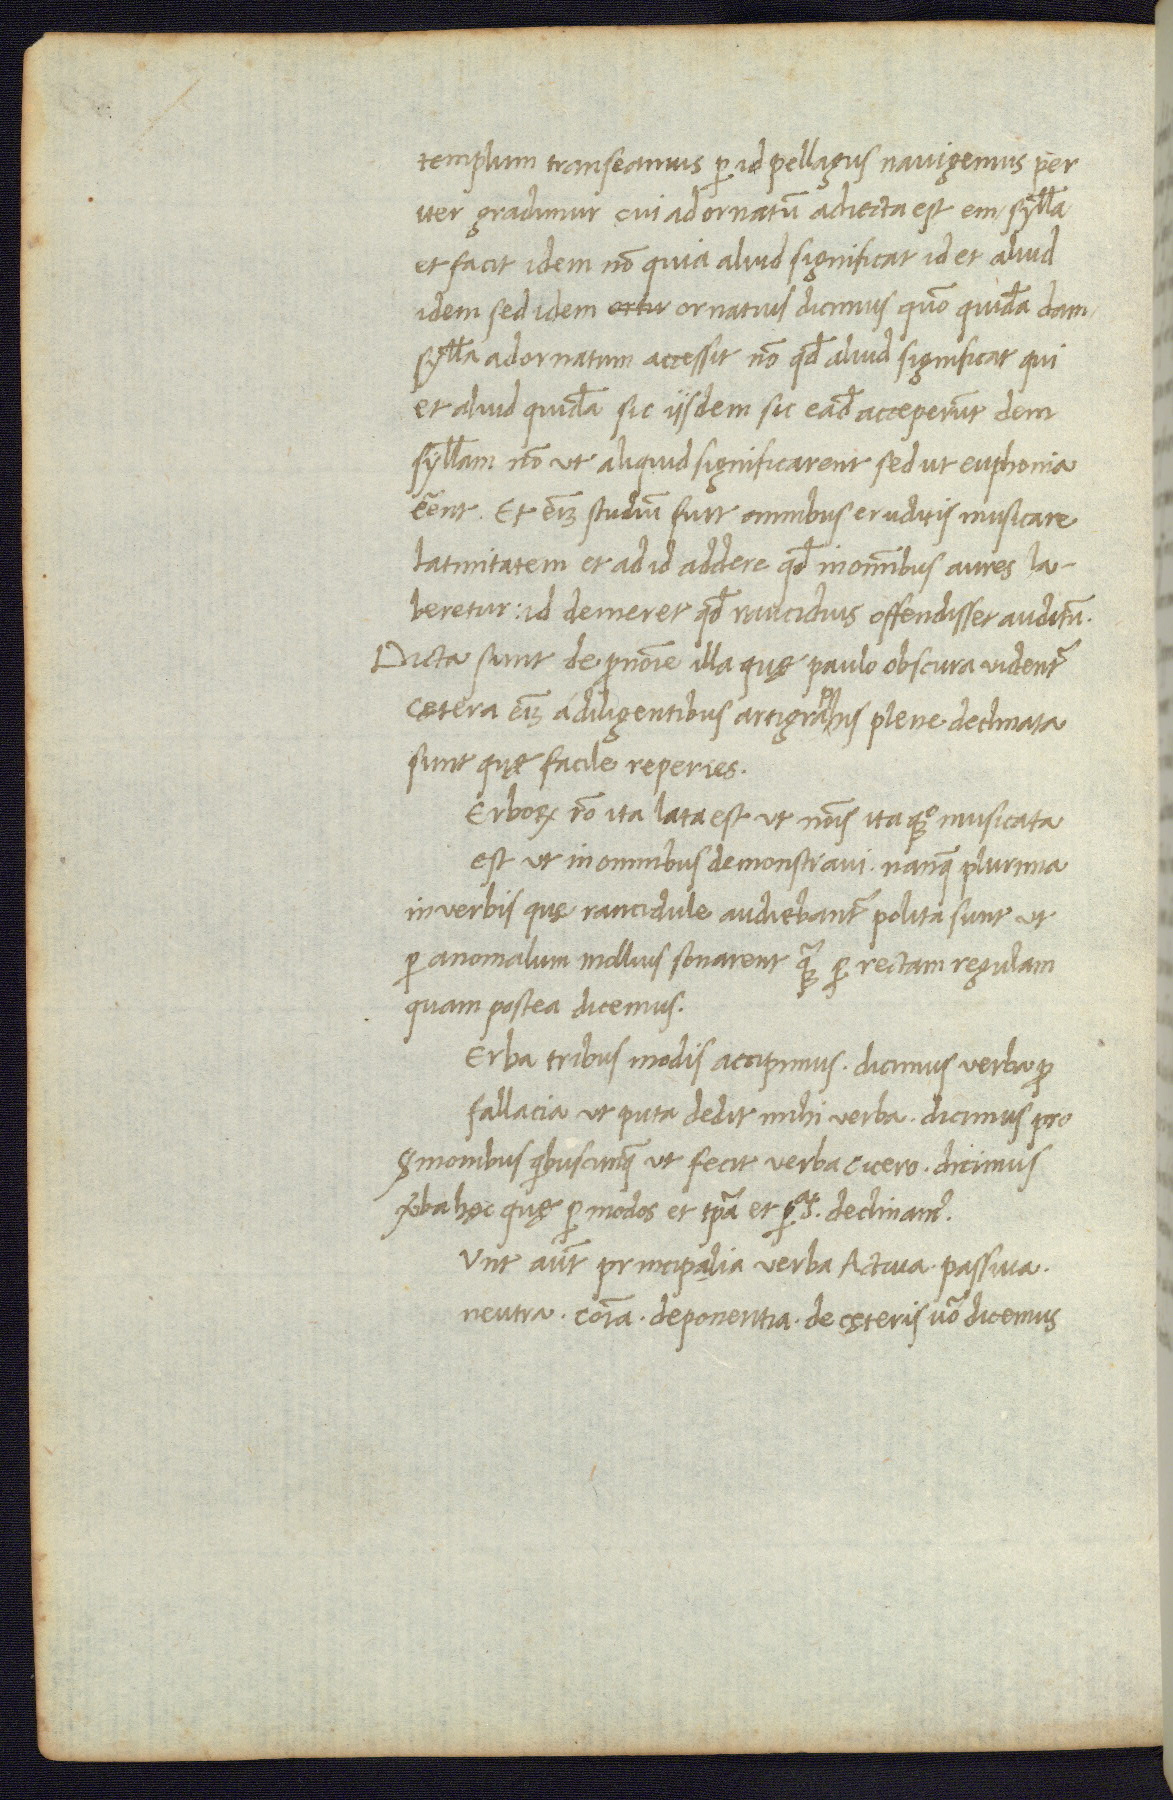 templum transeamus p̱ id pellagus nauigemus per
iter gradimur cui ad ornatū adiecta est em sylla
et facit idem nō quia aliud significat id et aliud
idem sed idem ornatius dicimus quō quidā dam
sylla ad ornatum accessit nō qđ aliud significat qui
et aliud quidā sic iisdem sic eađ acceperūt dem
syllam nō ut aliquid significarent sed ut euphonia
eēnt. Et eīz studiū fuit omnibus eruditis musicare
latinitatem et ad id addere qđ in omībus aures la-
beretur: id demeret qđ rancidius offendisset auditū.
Dicta sunt de pnoīe illa quę paulo obscura uident̄
cętera eīz a diligentibus artigraphis plene declinata
sunt quę facile reperies.
Erboꝝ rō ita lata est ut noīs ita quoqȝ musicata
est ut in omnibus demonstraui. nanqȝ plurima
in verbis quę rancidule audiebant̄ polita sunt ut
p̱ anomalum mollius sonarent qȝ̄ p̱ rectam regulam
quam postea dicemus.
Erba tribus modis accipimus. dicimus verba p̱
fallacia ut puta dedit mihi verba. dicimus pro
sermonibus qbuscunqȝ ut fecit verba cicero. dicimus
ỽba hęc quę p̱ modos et tp̄a et p̱. declinant̄.
Unt aūt principalia verba Actiua. passiua.
neutra. coīa. deponentia. de cęteris uō dicemus